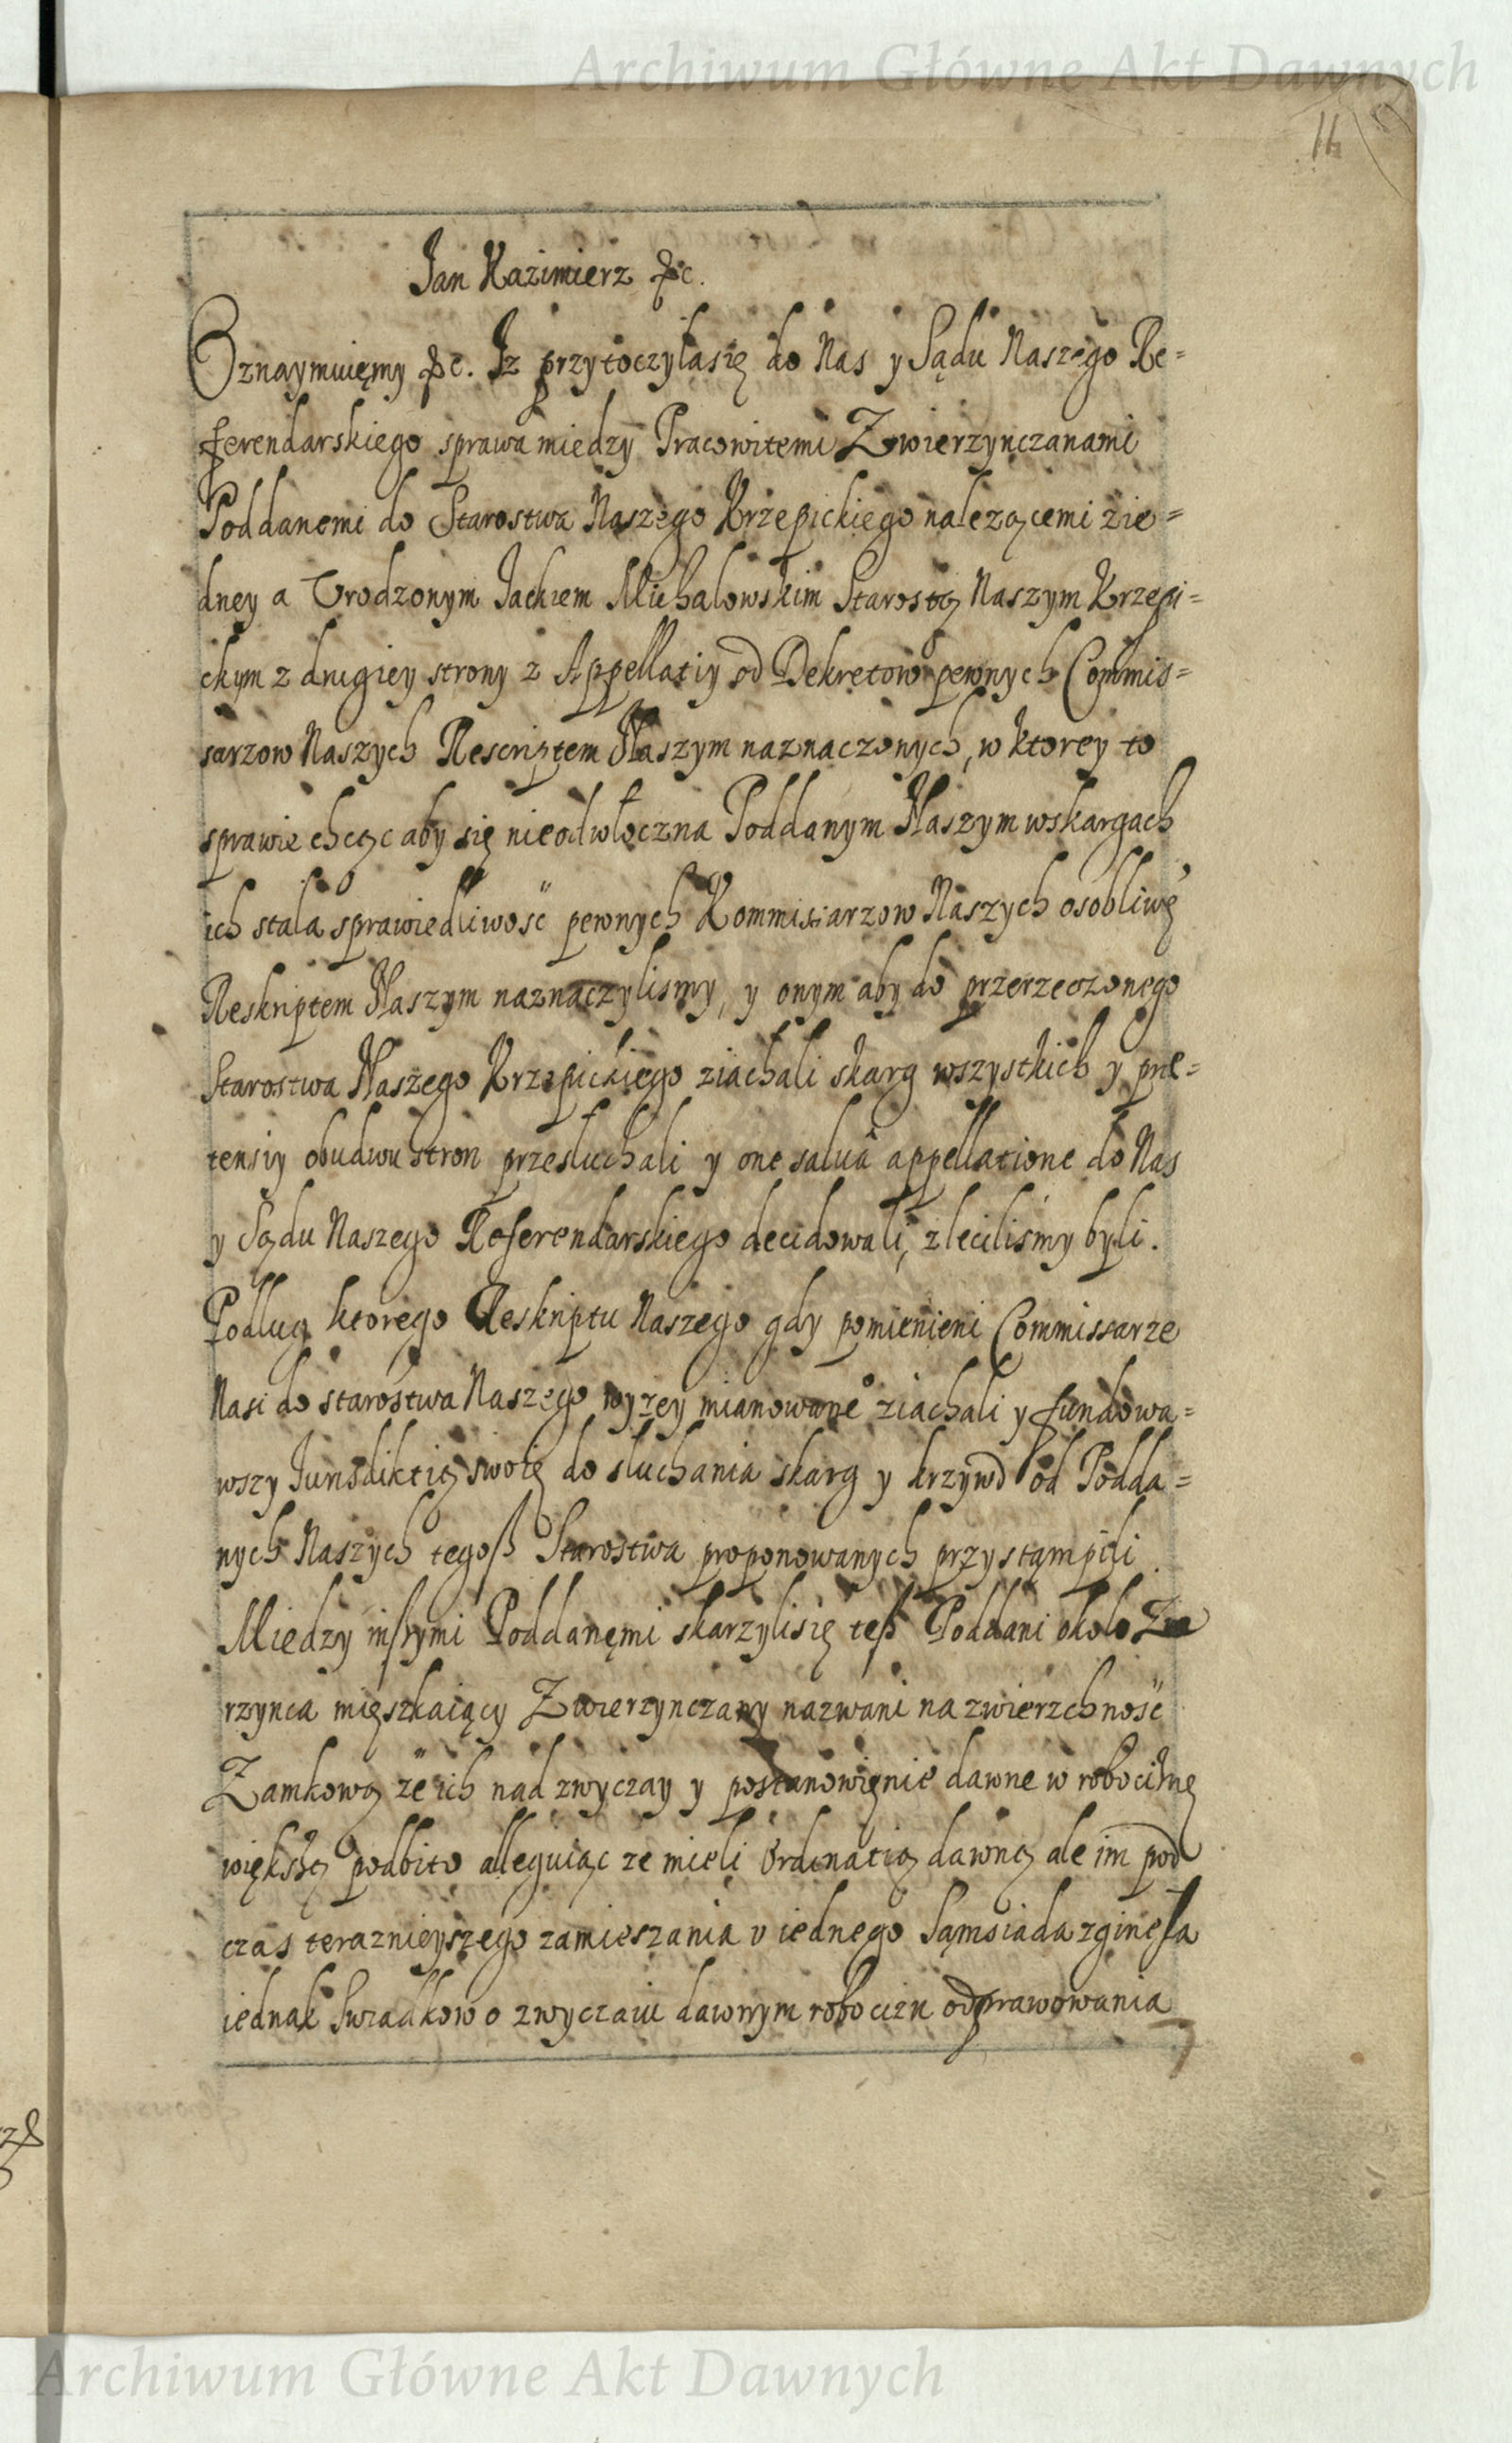 Archiwum Główne Akt Dawnych
16
Jan Kazimierz &c.
Oznaymuięmy &c. Iz przytoczyłasię do Nas y Sądu Naszego Re=
ferendarskiego sprawa miedzy Pracowitemi Zwierzynczanami
Poddanemi do Starostwa Naszego Krzepickiego nalezącemi zie=
dney a Vrodzonym Jackiem Michalowskim Starostą Naszym Krzepi=
ckym z drugiey strony z Appellatiy od Dekretow pewnych Commis=
sarzow Naszych Rescriptem Naszym naznaczonych, w ktorey to
sprawie chcąc aby się nieodwłoczna Poddanym Naszym wskargach
ich stala sprawiedliwość pewnych Kommissarzow Naszych osobliwę
Reskriptem Naszym naznaczylismy, y onym aby do przerzeczonego
Starostwa Naszego Krzepickiego ziachali skarg wszystkich y pre=
tensiy obudwu stron przesłuchali y one salua appellatione do Nas
y Sądu Naszego Referendarskiego decidowali, zlecilismy byli.
Podlug ktorego Reskriptu Naszego gdy pomienieni Commissarze
Nasi do starostwa Naszego wyzey mianowane° ziachali y fundowa=
wszy Iurisdiktią swoię do słuchania skarg y krzywd od Podda=
nych Naszych tegoß Starostwa proponowanych przystąmpili
Miedzy inszymi Poddanęmi skarzylisię teß Poddani około Zwie
rzynca mięszkaiący Zwierzynczany nazwani na zwierzchność
Zamkową ze ich nad zwyczay y postanowięnie dawne w robociznę
większą podbito alleguiąc ze mieli Ordinatią dawną ale im pod
czas teraznieyszego zamieszania v iednego Sąmsiada zginęła
iednak Swiadkow o zwyczaiu dawnym robocizn odprawowania
Archiwum Główne Akt Dawnych